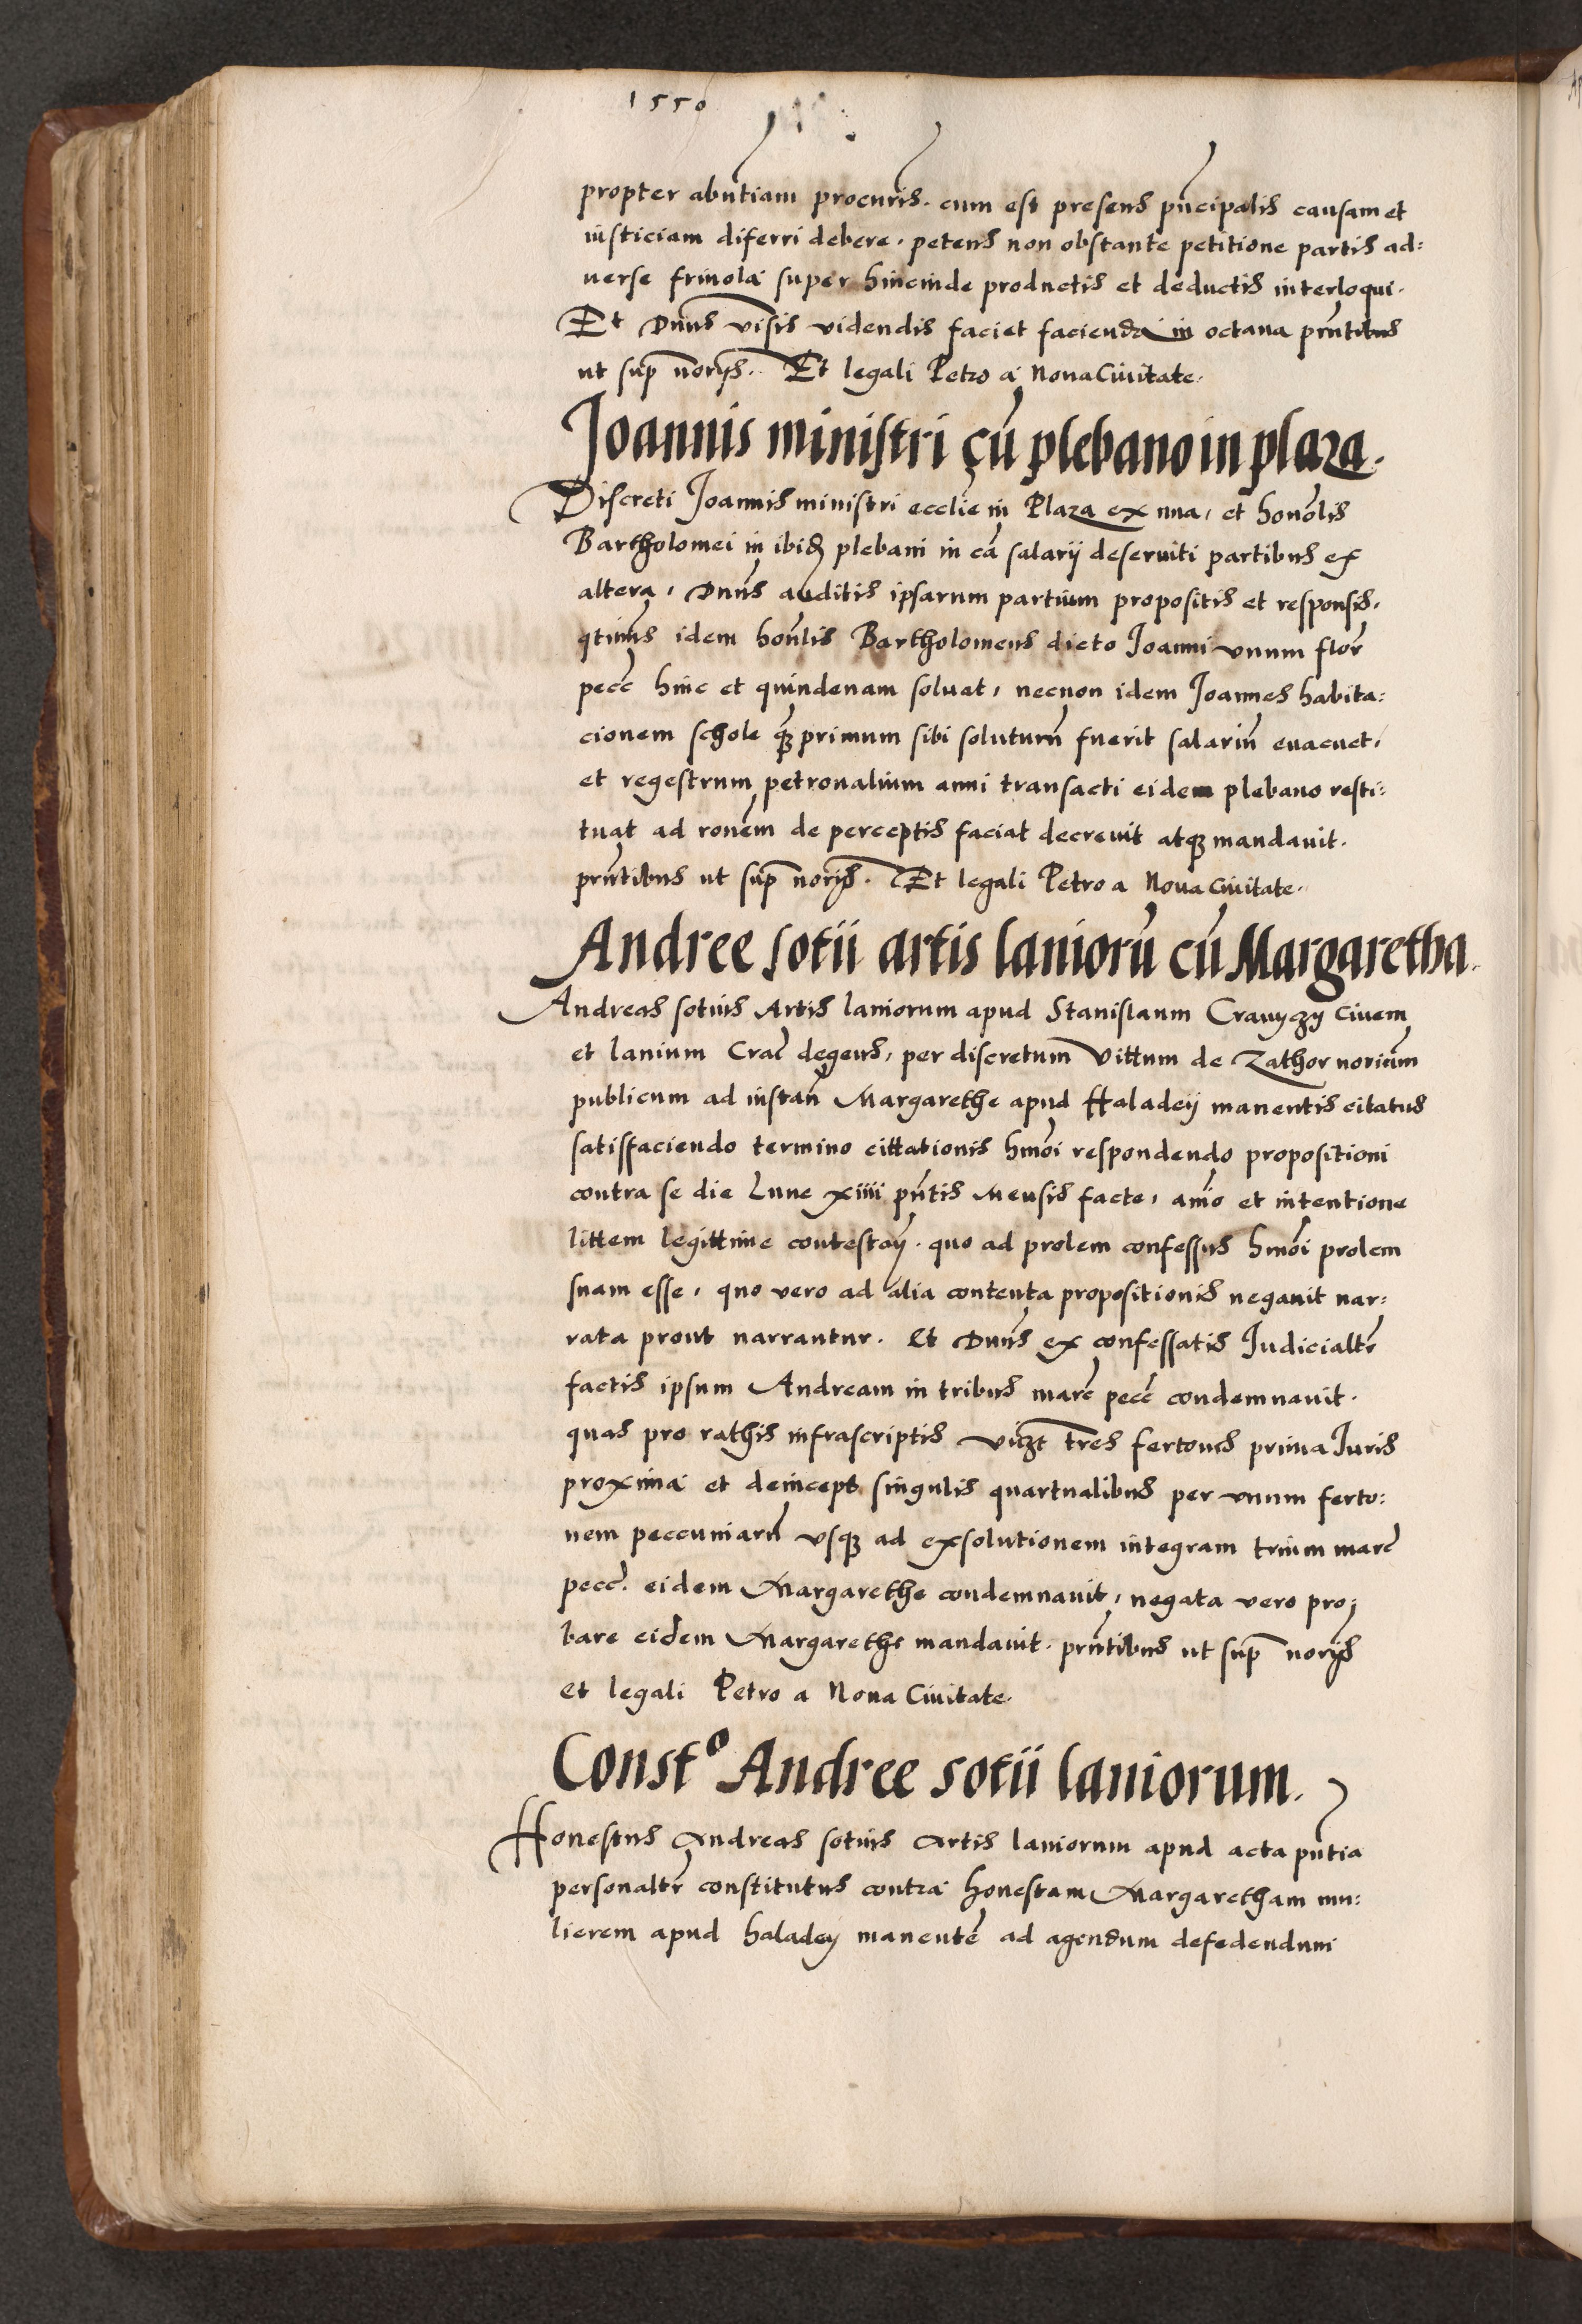 1550
propter abn̄tiam procuris. cum est presens pn̄cipalis causam et
iusticiam diferri debere. petens non obstante petitione partis ad:
uerse friuola super hincinde productis et deductis interloqui.
Et Dnus visis videndis faciet facienda in octaua prn̄tibus
ut sup norijs. Et legali Petro a Noua Ciuitate.
Joannis ministri cū plebano in plaza.
Discreti Joannis ministri ecclie in Plaza ex una, et honolis
Bartholomei in ibid plebani in cā salarij deseruiti partibus ex
altera, Dnus auditis ipsarum partium propositis et responsis,
qtinus idem honlis Bartholomeus dicto Joanni vnum flor
pecc hinc et quindenam soluat, necnon idem Joannes habita:
cionem schole qz primum sibi solutum fuerit salariū euacuet,
et regestrum petronalium anni transacti eidem plebano resti:
tuat ad ronem de perceptis faciat decreuit atqz mandauit.
prn̄tibus ut sup norijs. Et legali Petro a Noua Ciuitate.
Andree sotii artis laniorū cū Margaretha.
Andreas sotius Artis laniorum apud Stanislaum Crauyczy Ciuem
et lanium Crac degens, per discretum Vittum de Zathor norium
publicum ad instan Margarethe apud Haladey manentis citatus
satisfaciendo termino cittationis hmoi respondendo propositioni
contra se die Lune xiiii pn̄tis Mensis facte, aīo et intentione
littem legittime contestan. quo ad prolem confessus hmoi prolem
suam esse, quo vero ad alia contenta propositionis negauit nar:
rata prout narrantur. Et Dnus ex confessatis Judicialtr
factis ipsum Andream in tribus marc pecc condemnauit.
quas pro rathis infrascriptis vizt tres fertones prima Juris
proxima et deinceps singulis quartualibus per vnum ferto:
nem peccuniarū vsqz ad exsolutionem integram trium marc
pecc. eidem Margarethe condemnauit, negata vero pro:
bare eidem Margarethe mandauit. prn̄tibus ut sup norijs
et legali Petro a Noua Ciuitate.
Constº Andree sotii laniorum.
Honestus Andreas sotius Artis laniorum apud acta pn̄tia
personaltr constitutus contra honestam Margaretham mu:
lierem apud haladey manentē ad agendum defedendum